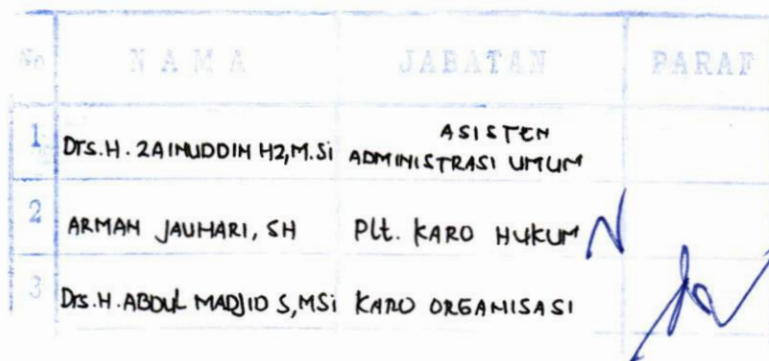 No NAMA JABATAN PARAF
1 Drs.H. ZAINUDDIN HZ,M.Si ASISTEN ADMINISTRASI UMUM
2 ARMAN JAUHARI, SH Plt. KARO HUKUM
3 Drs.H.ABDUL MADJID S,MSi KARO ORGANISASI